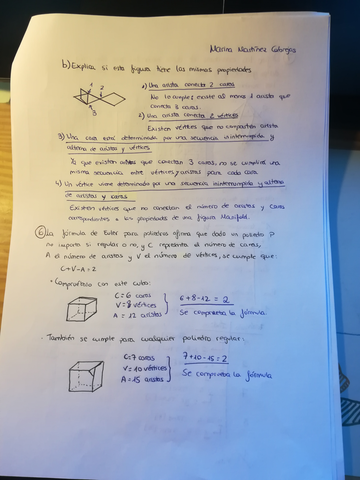 Marina Martínez
b) Explica si esta figura tiene las mismas propiedades
1) Una arista conecta 2 caras
1 2
No lo cumple; existe al menos 1 arista que
conecta 3 caras.
3
2) Una arista conecta 2 vértices
Existen vértices que no comparten arista
3) Una cara está determinada por una secuencia ininterrumpida y
alterna de aristas y vértices
Ya que existen aristas que conectan 3 caras, no se cumpliría una
misma secuencia entre vértices y aristas para cada cara
4) Un vértice viene determinado por una secuencia ininterrumpida y alterna
de aristas y caras
Existen vértices que no el número de aristas y caras
correspondientes a las propiedades de una figura Manifold.
6) La fórmula de Euler para poliedros afirma que dado un poliedro P
no importa si regular o no, y C representa el número de caras,
A el número de aristas y V el número de vértices, se cumple que:
C+V-A=2
· Comprobamos con este cubo:
C=6 caras
V=8 vértices
A=12 aristas
6+8-12=2
Se comprueba la fórmula
· También se cumple para cualquier poliedro regular:
C:7 caras
V=10 vértices
A=15 aristas
7+10-15=2
Se comprueba la fórmula